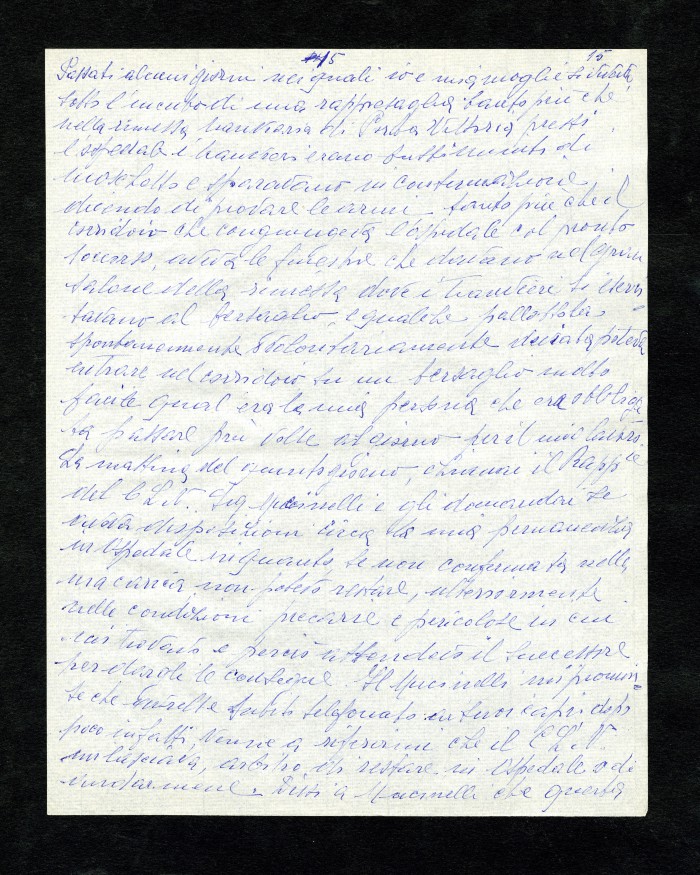 15 15
Passati alcuni giorni nei quali io e mia moglie si viveva
sotto l'incubo di una rappresaglia tanto più che
nella rimessa tranviaria di Porta Vittoria presso
l'ospedale i tranvieri erano tutti muniti di
moschetto e sparavano in continuazione
dicendo di provare le armi tanto più che il
corridoio che congiungeva l'ospedale col pronto
soccorso, aveva le finestre che davano nel gran
salone della rimessa dove i tranvieri si eserci
tavano al bersaglio, e qualche pallottola
spontaneamente o volontariamente deviata poteva
entrare nel corridoio su un bersaglio molto
facile qual era la mia persona che era obbliga
ta passare più volte al giorno per il mio lavoro.
La mattina del quinto giorno, chiamai il Rapp.te
del C.L.N. Sig Mucinelli e gli domandai se
aveva disposizioni circa la mia permanenza
in ospedale inquanto, se non confermata nella
mia carica non potevo restare, ulteriormente
nelle condizioni precarie e pericolose in cui
mi trovavo e perciò attendevo il successore
per dargli le consegne. Il Mucinelli mi promi=
se che avrebbe subito telefonato ai suoi capi dopo
poco infatti, venne a riferirmi che il C.L.N.
mi lasciava, arbitro di restare in ospedale o di
andarmene. Dissi a Mucinelli che questa